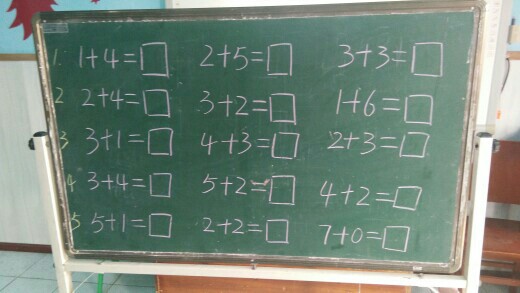 1. 1+4=□ 2+5=□ 3+3=□
2 2+4=□ 3+2=□ 1+6=□
3 3+1=□ 4+3=□ 2+3=□
4 3+4=□ 5+2=□ 4+2=□
5 5+1=□ 2+2=□ 7+0=□